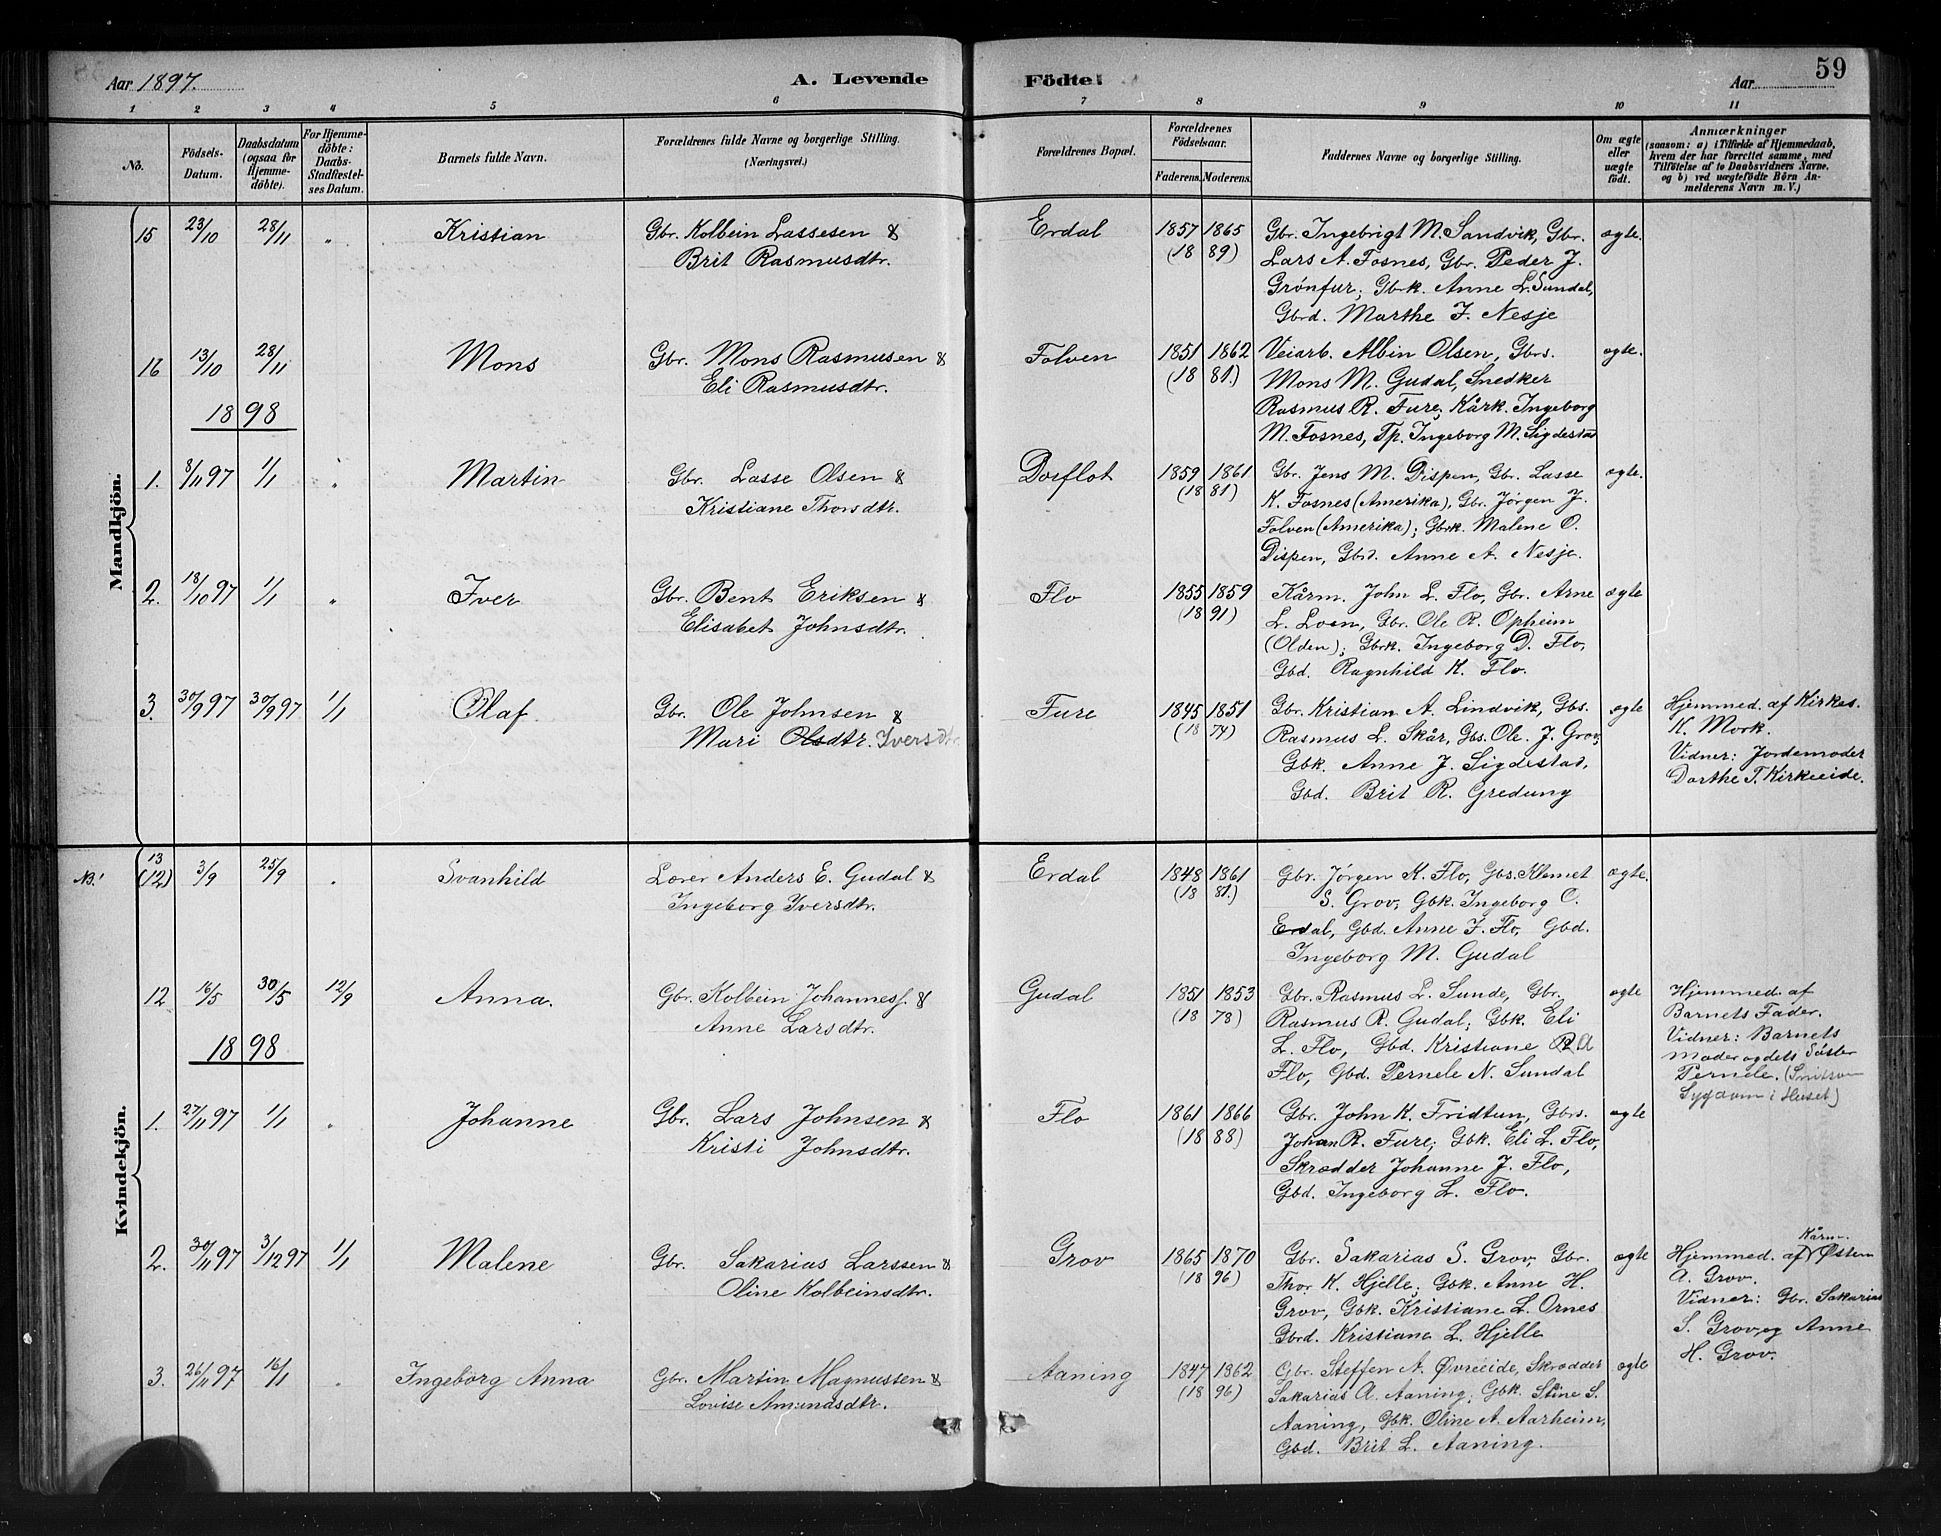 Aar 1897. A. Levende Födte. Aar 59
1 2 3 4 5 6 7 8 9 10 11
Nö. Födsels-Datum. Daabsdatum (ogsaa for Hjemmedöbte). For Hjemmedöbte: Daabs-Stadfæstelses Datum. Barnets fulde Navn. Forældrenes fulde Navne og borgerlige Stilling. (Næringsvei.) Forældrenes Bopæl. Forældrenes Födselsaar. Faderens. Moderens. Faddernes Navne og borgerlige Stilling. Om ægte eller uægte födt. Anmærkninger (saasom: a) i Tilfælde af Hjemmedaab, hvem der har forrettet samme, med Tilföielse af to Daabsvidners Navne, og b) ved uægtefödte Börn Anmelderens Navn m. V.)
Mandkjön.
15 23/10 28/11 " Kristian Gbr. Kolbein Lassesen & Erdal 1857 1865 Gbr. Ingebrigt M. Sandvik, Gbr. ægte.
Brit Rasmusdtr. (18 89) Lars A. Fosnes, Gbr. Peder J.
Grönfur; Gbrk. Anne L. Sundal,
Gbrd. Marthe J. Nesje
16 13/10 28/11 Mons Gbr. Mons Rasmusen & Folven 1851 1862 Veiarb. Albin Olsen, Gbrs. ægte.
Eli Rasmusdtr. (18 81.) Mons M. Gudal, Snedker
1898 Rasmus R. Fure; Kårk. Ingeborg
M. Fosnes, Tp. Ingeborg M. Sigdestad
1. 8/11 97 1/1 " Martin Gbr. Lasse Olsen & Dorflot 1859 1861 Gbr. Jens M. Dispen, Gbr. Lasse ægte.
Kristiane Thorsdtr. (18 81) K. Fosnes (Amerika), Gbr. Jörgen J.
Folven (Amerika); Gbrk. Malene O.
Dispen, Gbd. Anne A. Nesje.
2. 18/10 97 1/1 " Iver Gbr. Bent Eriksen & Flo 1855 1859 Kårm. John L. Flo, Gbr. Arne ægte
Elisabet Johnsdtr. (18 91) L. Loen, Gbr. Ole R. Opheim
(Olden); Gbrk. Ingeborg D. Flo,
Gbd. Ragnhild K. Flo.
3. 30/9 97 30/9 97 1/1 Olaf. Gbr. Ole Johnsen & Fure 1845 1851 Gbr. Kristian A. Lindvik, Gbs. ægte Hjemmed. af Kirkes.
Mari Olsdtr. Iversdtr. (18 74) Rasmus L. Skår, Gbs. Ole. J. Grov; K. Mork.
Gbk. Anne J. Sigdestad, Vidner: Jordemoder
Gbd. Brit R. Gredung Dorthe T. Kirkeeide.
Kvindekjön.
NB! 13 (12) 3/9 25/9 " Svanhild Lærer Anders E. Gudal & Erdal 1848 1861 Gbr. Jörgen K. Flo, Gbs. Klemet ægte.
Ingeborg Iversdtr. (18 81.) S. Grov; Gbk. Ingeborg C.
Erdal, Gbd. Anne J. Flo, Gbd.
Ingeborg M. Gudal
12 16/5 30/5 12/9 Anna. Gbr. Kolbein Johannes. & Gudal 1851 1853 Gbr. Rasmus L. Sunde, Gbr. ægte Hjemmed. af
Anne Larsdtr. (18 78) Rasmus R. Gudal; Gbk. Eli Barnets Fader.
1898 L. Flo, Gbd. Kristiane A Vidner: Barnets
Flo, Gbd. Pernele N. Sundal Moder og dets Söster
Pernele. (Smitsom
Sygdom i Huset)
1. 27/11 97 1/1 " Johanne Gbr. Lars Johnsen & Flo 1861 1866 Gbr. John K. Fridtun, Gbrs. ægte
Kristi Johnsdtr. (18 88) Johan R. Fure; Gbk. Eli L. Flo,
Skrædder Johanne J. Flo,
Gbd. Ingeborg L. Flo.
2. 30/11 97 3/12 97 1/1 Malene Gbr. Sakarias Larssen & Grov 1865 1870 Gbr. Sakarias S. Grov, Gbr. ægte Hjemmed. af Kårm. Östen
Oline Kolbeinsdtr. (18 96) Thor K. Hjelle; Gbk. Anne H. A. Grov.
Grov, Gbk. Kristiane L. Ornes Vidner: Gbr. Sakarias
Gbrd. Kristiane L. Hjelle S. Grov, og Anne
H. Grov.
3. 26/11 97 16/1 " Ingeborg Anna Gbr. Martin Magnussen & Aaning 1847 1862 Gbr. Steffen N. Övreeide, Skrædder ægte
Lovise Amundsdtr. (18 96) Sakarias A. Aaning; Gbk. Stine S.
Aaning, Gbk. Oline A. Aarheim,
Gbd. Brit L. Aaning.